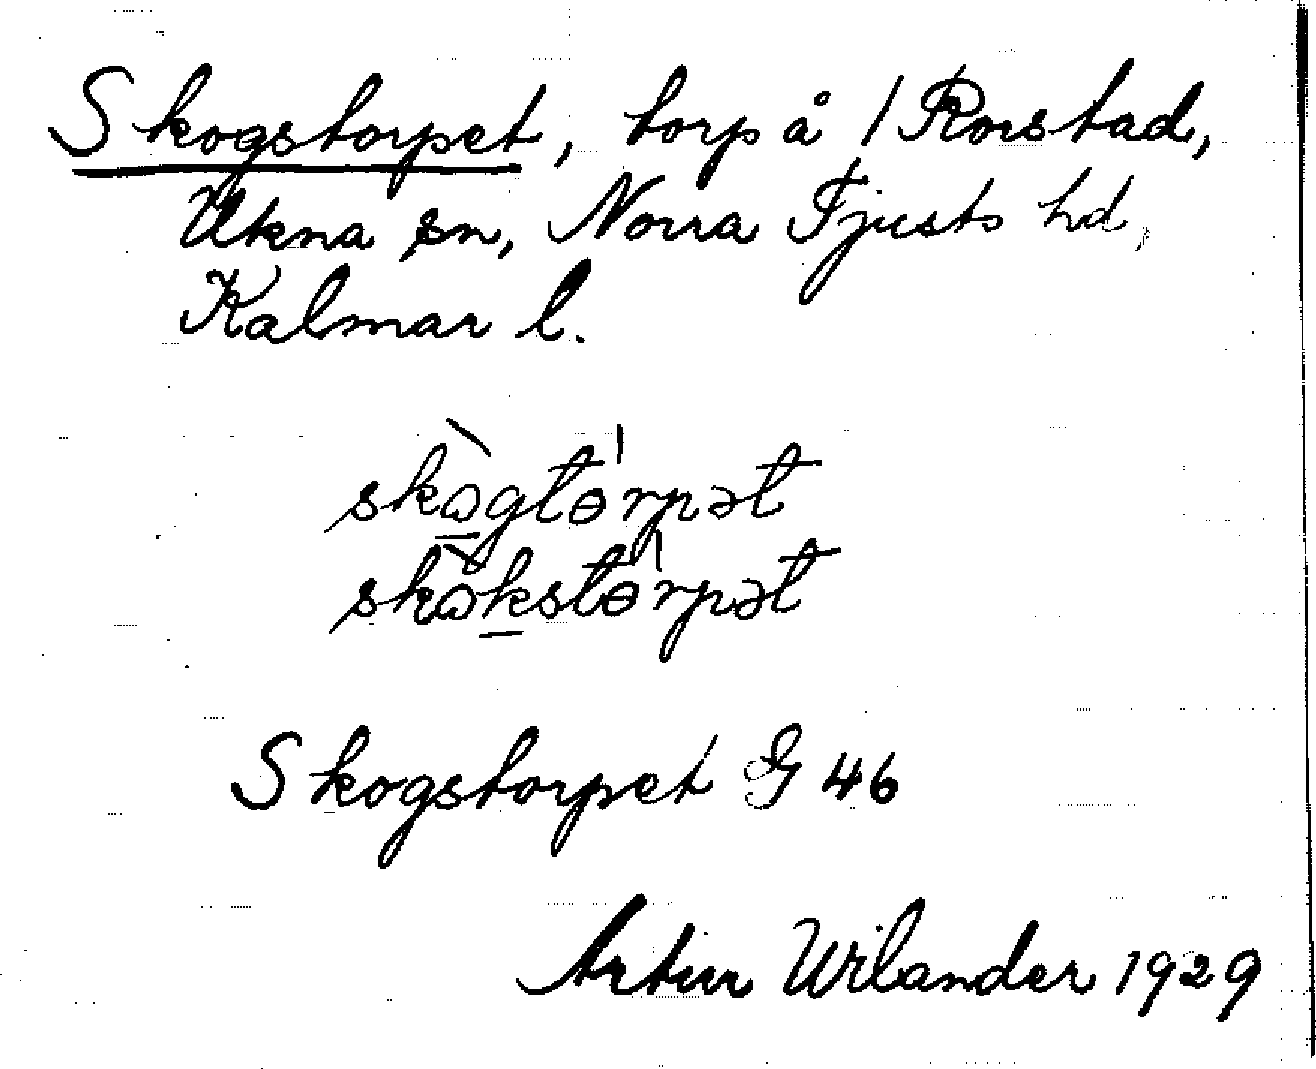 Skogstorpet, torp å / Rorstad,
Ukna sn, Norra Tjusts hd,
Kalmar l.
skògtɵ'rpət
skòkstɵ'rpət
Skogstorpet G 46
Artur Wilander 1929